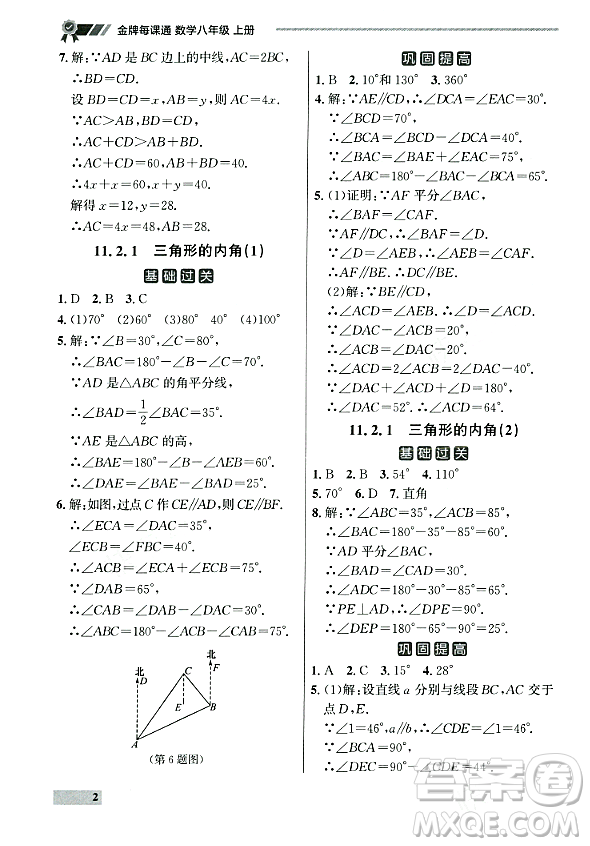 金牌每课通 数学八年级 上册
7. 解:∵AD 是 BC 边上的中线, AC=2BC,
∴BD=CD.
设 BD=CD=x, AB=y, 则 AC=4x.
∵AC>AB, BD=CD,
∴AC+CD>AB+BD.
∴AC+CD=60, AB+BD=40.
∴4x+x=60, x+y=40.
解得 x=12, y=28.
∴AC=4x=48, AB=28.
11.2.1 三角形的内角(1)
基础过关
1. D 2. B 3. C
4. (1)70° (2)60° (3)80° 40° (4)100°
5. 解:∵∠B=30°, ∠C=80°,
∴∠BAC=180°-∠B-∠C=70°.
∵AD 是△ABC 的角平分线,
∴∠BAD=1/2∠BAC=35°.
∵AE 是△ABC 的高,
∴∠BAE=180°-90°-∠B=60°.
∴∠DAE=∠BAE-∠BAD=25°.
6. 解:如图, 过点 C 作 CE∥AD, 则 CE∥BF.
∴∠ECA=∠DAC=35°,
∠ECB=∠CBF=40°.
∴∠ACB=∠ECA+∠ECB=75°.
∵∠DAB=65°,
∴∠CAB=∠DAB-∠DAC=30°.
∴∠ABC=180°-∠CAB-∠ACB=75°.
北
D
C
北
F
E
B
A
(第 6 题图)
2
巩固提高
1. B 2. 10°和 130° 3. 360°
4. 解:∵AE∥CD, ∴∠DCA=∠EAC=30°.
∵∠BCD=70°,
∴∠BCA=∠BCD-∠DCA=40°.
∵∠BAC=∠BAE+∠EAC=75°.
∴∠ABC=180°-∠BCA-∠BAC=65°.
5. (1)证明:∵AF 平分∠BAC,
∴∠BAF=∠CAF.
∵AF∥DC, ∴∠CAF=∠ACD.
∵∠ABE=∠ACD, ∴∠ABE=∠BAF.
∴AF∥BE.
(2)解:∵AF∥BE, AF∥DC,
∴BE∥CD.
∴∠ACD=∠AEB.
∵∠AEB-∠ACB=20°,
∴∠ACD-∠ACB=20°.
∴∠ACB=∠ACD-20°.
∴∠CAD=2∠ACB=2∠ACD-40°.
∵∠DAC+∠ACD+∠D=180°,
∴∠DAC=52°. ∴∠CAF=64°.
11.2.1 三角形的内角(2)
基础过关
1. B 2. B 3. 54° 4. 110°
5. 70° 6. D 7. 直角
8. 解:∵∠ABC=35°, ∠ACB=85°,
∴∠BAC=180°-35°-85°=60°.
∵AD 平分∠BAC,
∴∠BAD=30°.
∴∠ADC=180°-85°-30°=65°.
∵PE⊥AD, ∴∠DPE=90°.
∴∠DEP=180°-65°-90°=25°.
巩固提高
1. A 2. C 3. 15° 4. 28°
5. (1)解:设直线 a 分别与线段 BC, AC 交于
点 D, E.
∵∠1=46°, a∥b, ∴∠CDE=∠1=46°.
∵∠BAC=90°,
∴∠DEC=90°-∠CDE=44°.
答案圈